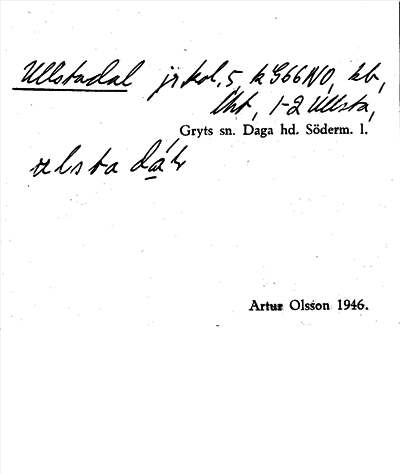 Ullstadal jrkol. 5, k G66NO, kb,
Cht, 1-2 Ullsta,
Gryts sn. Daga hd. Söderm. l.
ulsta
Artur Olsson 1946.